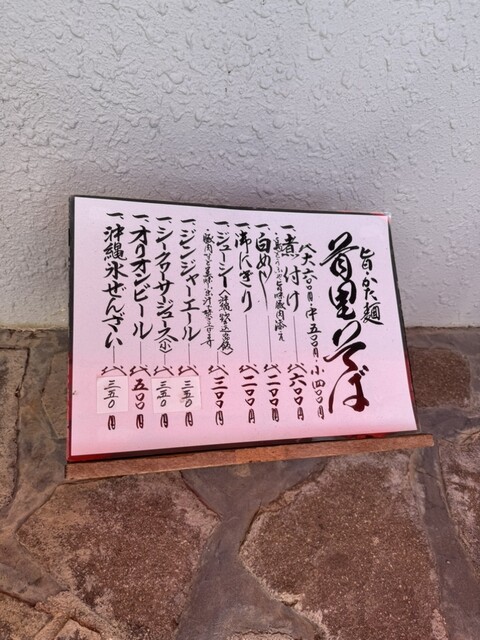 旨・かた麺
首里そば
大 六〇〇円・中 五〇〇円・小 四〇〇円
一、煮付け 六〇〇円
一、白めし 二〇〇円
一、御にぎり 二〇〇円
一、ジューシー 三〇〇円
一、ジンジャーエール 三五〇円
一、シークワーサージュース(小) 三五〇円
一、オリオンビール 五〇〇円
一、沖縄氷ぜんざい 三五〇円